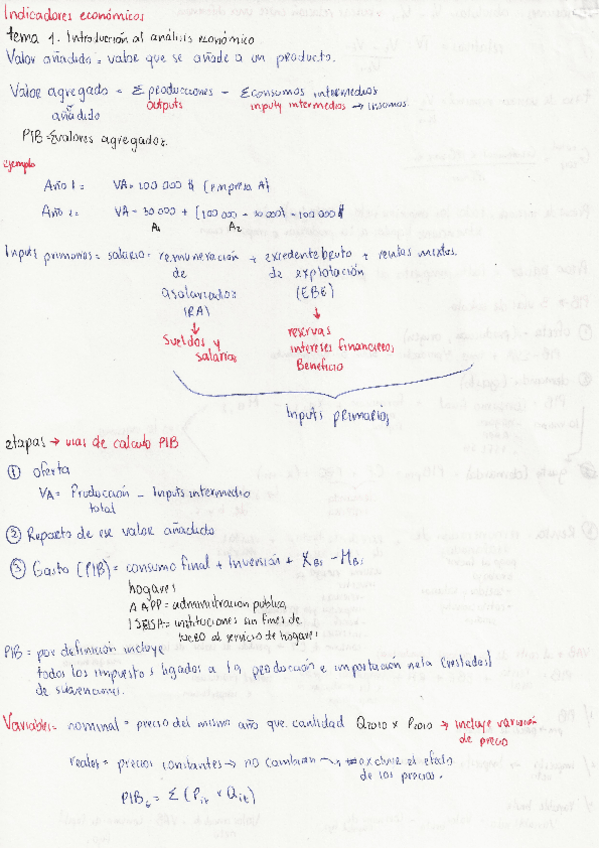 Indicadores económicos
tema 1. Introducción al análisis económico.
Valor añadido = valor que se añade a un producto.
Valor agregado = Σ producciones - Σ consumos intermedios
añadido outputs inputs intermedios → insumos
PIB = Σ valores agregados.
ejemplo
Año 1 = VA = 100 000 $ (empresa A)
Año 2 = VA = 30 000 + (100 000 - 30 000) = 100 000 $
A1 A2
Inputs primarios = salario = remuneración + excedente bruto + rentas mixtas.
de de explotación
asalariados (EBE)
(RA)
Sueldos y reservas
salarios intereses financieros,
Beneficio
Inputs primarios
etapas → vias de calculo PIB
① oferta
VA = Producción - Inputs intermedio
total
② Reparto de ese valor añadido
③ Gasto (PIB) = consumo final + Inversión + XBs - MBs
hogares
AAPP = administración publica,
ISFLSH = instituciones sin fines de
lucro al servicio de hogares
PIB = por definición incluye
todos los impuestos ligados a la producción e importación neta (restados)
de subvenciones.
Variables = nominal = precio del mismo año que cantidad Q2010 x P2010 → incluye variación
de precio
reales = precios constantes → no cambian → excluye el efecto
de los precios.
PIBt = Σ (Pit x Qit)